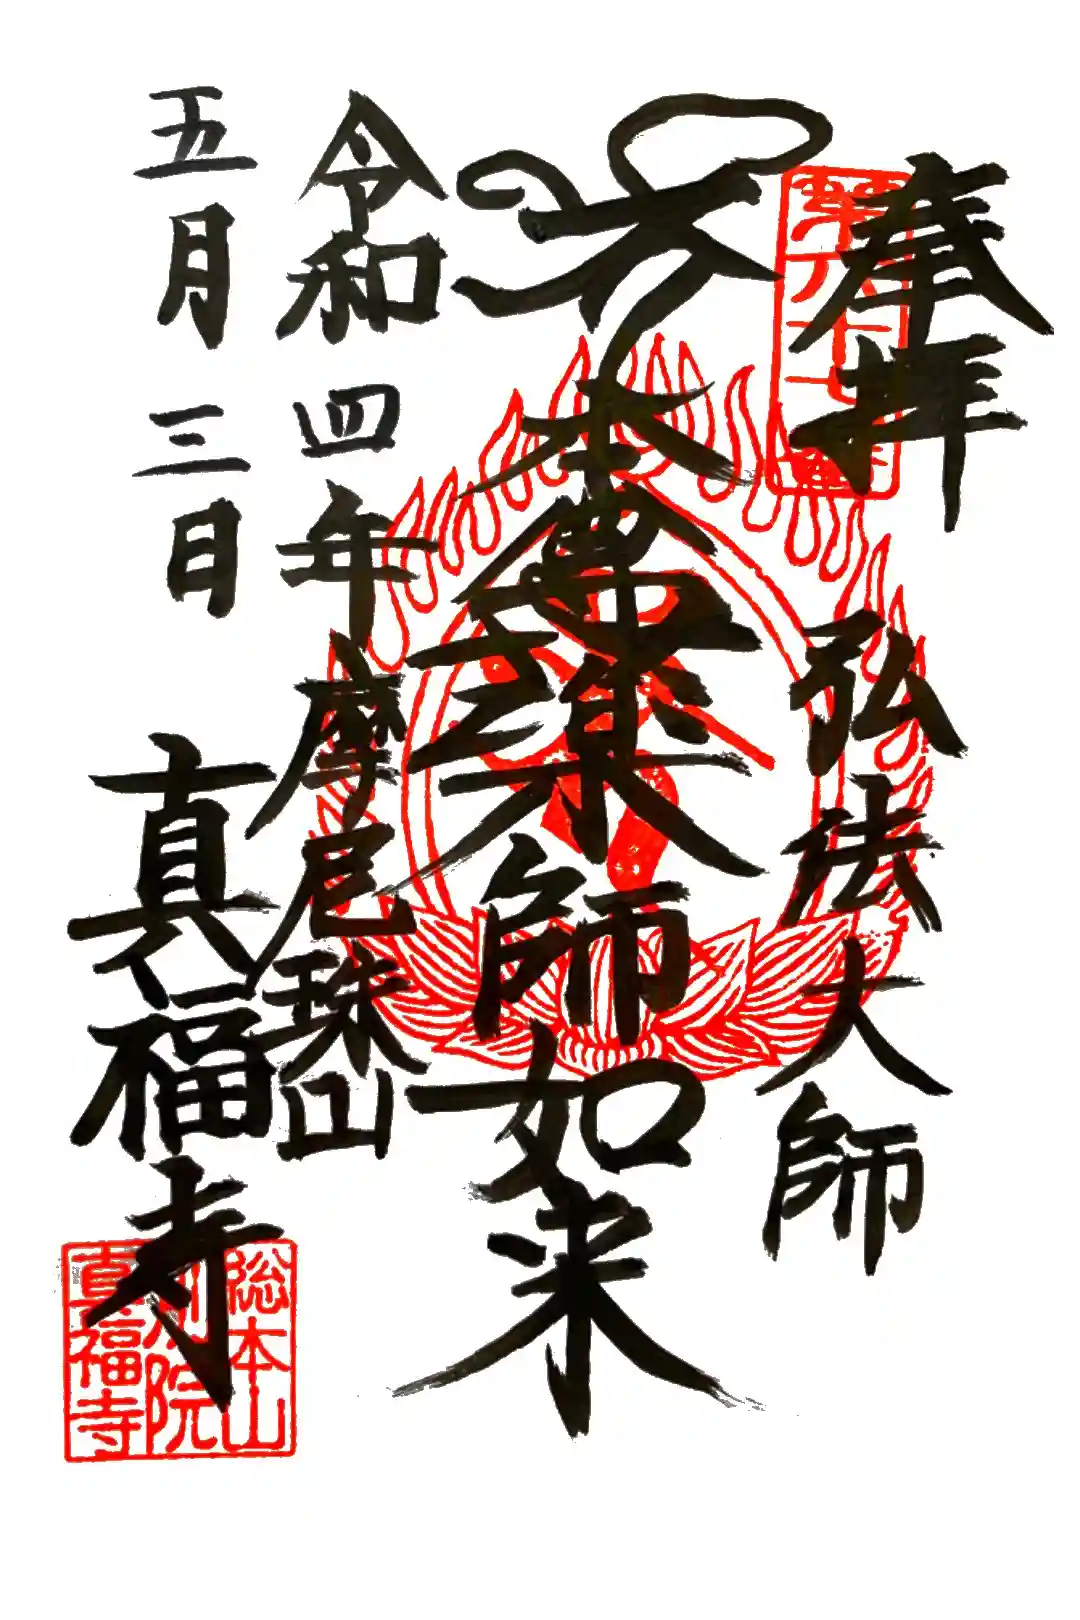 奉拝
弘法大師
第六十七番
本尊薬師如来
令和四年
摩尼珠山
五月三日
真福寺
総本山
別院
真福寺